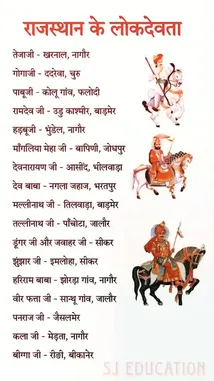 राजस्थान के लोकदेवता
तेजाजी - खरनाल, नागौर
गोगाजी - ददरेवा, चुरु
पाबूजी - कोलू गांव, फलोदी
रामदेव जी - उडु काश्मीर, बाड़मेर
हड़बूजी - भुंडेल, नागौर
माँगलिया मेहा जी - बापिणी, जोधपुर
देवनारायण जी - आसींद, भीलवाड़ा
देव बाबा - नगला जहाज, भरतपुर
मल्लीनाथ जी - तिलवाड़ा, बाड़मेर
तल्लीनाथ जी - पाँचोटा, जालौर
डूंगर जी और जवाहर जी - सीकर
झुंझार जी - इमलोहा, सीकर
हरिराम बाबा - झोरड़ा गांव, नागौर
वीर फत्ता जी - सान्थू गांव, जालौर
पनराज जी - जैसलमेर
कला जी - मेड़ता, नागौर
बीग्गा जी - रीड़ी, बीकानेर
SJ EDUCATION